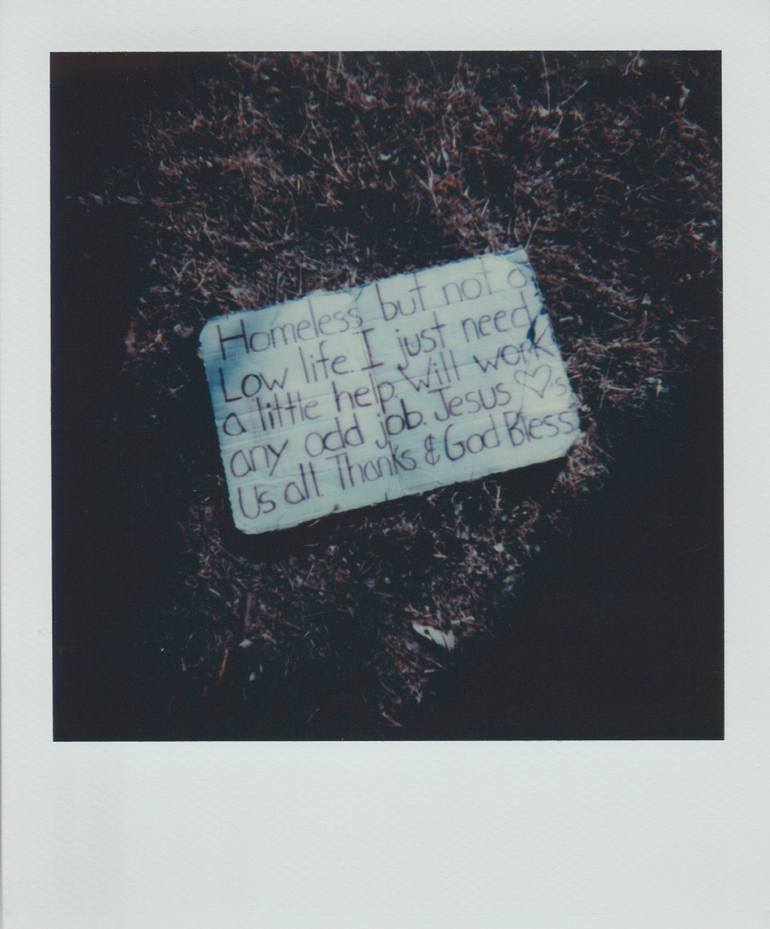 Homeless but not a
Low life. I just need
a little help. Will work
any odd job. Jesus ♡'s
Us all. Thanks & God Bless